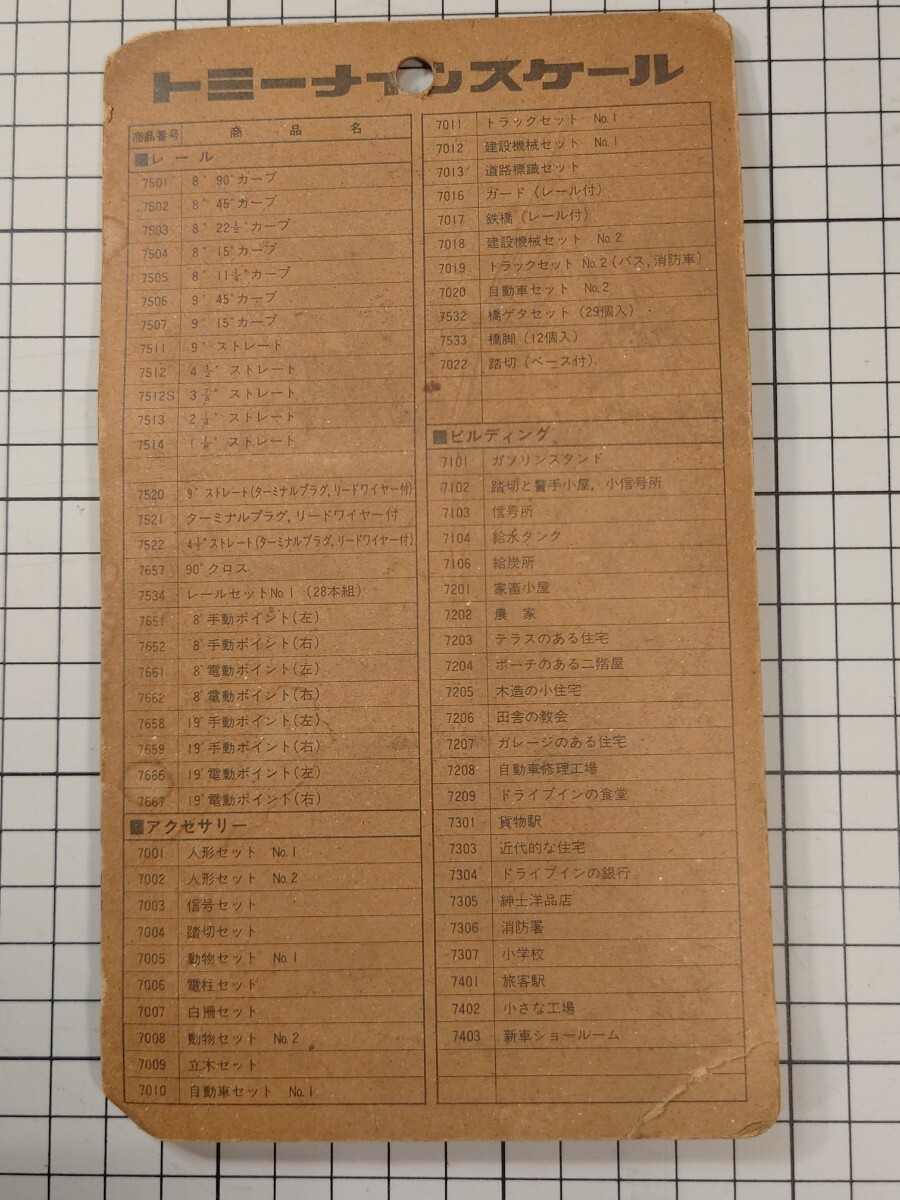 トミーナインスケール
商品番号 商品名
レール
7501 8" 90°カーブ
7502 8" 45°カーブ
7503 8" 22½°カーブ
7504 8" 15°カーブ
7505 8" 11¼°カーブ
7506 9" 45°カーブ
7507 9" 15°カーブ
7511 9" ストレート
7512 4½" ストレート
7512S 3⅞" ストレート
7513 2¼" ストレート
7514 ストレート
7520 9" ストレート(ターミナルプラグ,リードワイヤー付)
7521 ターミナルプラグ,リードワイヤー付
7522 4½"ストレート(ターミナルプラグ,リードワイヤー付)
7657 90°クロス
7534 レールセットNo.1 (28本組)
7651 8°手動ポイント(左)
7652 8°手動ポイント(右)
7661 8°電動ポイント(左)
7662 8°電動ポイント(右)
7658 19°手動ポイント(左)
7659 19°手動ポイント(右)
7666 19°電動ポイント(左)
7667 19°電動ポイント(右)
アクセサリー
7001 人形セット No.1
7002 人形セット No.2
7003 信号セット
7004 踏切セット
7005 動物セット No.1
7006 電柱セット
7007 白柵セット
7008 動物セット No.2
7009 立木セット
7010 自動車セット No.1
7011 トラックセット No.1
7012 建設機械セット No.1
7013 道路標識セット
7016 ガード (レール付)
7017 鉄橋 (レール付)
7018 建設機械セット No.2
7019 トラックセット No.2 (バス,消防車)
7020 自動車セット No.2
7532 橋ゲタセット (29個入)
7533 橋脚 (12個入)
7022 踏切 (ベース付)
ビルディング
7101 ガソリンスタンド
7102 踏切と警手小屋, 小信号所
7103 信号所
7104 給水タンク
7106 給炭所
7201 家畜小屋
7202 農家
7203 テラスのある住宅
7204 ポーチのある二階屋
7205 木造の小住宅
7206 田舎の教会
7207 ガレージのある住宅
7208 自動車修理工場
7209 ドライブインの食堂
7301 貨物駅
7303 近代的な住宅
7304 ドライブインの銀行
7305 紳士洋品店
7306 消防署
7307 小学校
7401 旅客駅
7402 小さな工場
7403 新車ショールーム